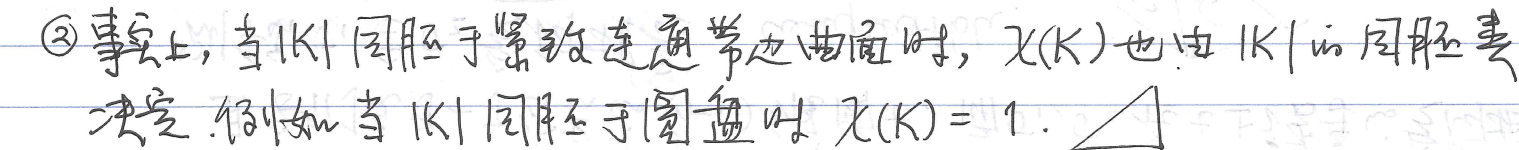 ② 事实上，当|K|同胚于紧致连通带边曲面时，χ(K)也由|K|的同胚类
决定.例如当|K|同胚于圆盘时χ(K)=1.